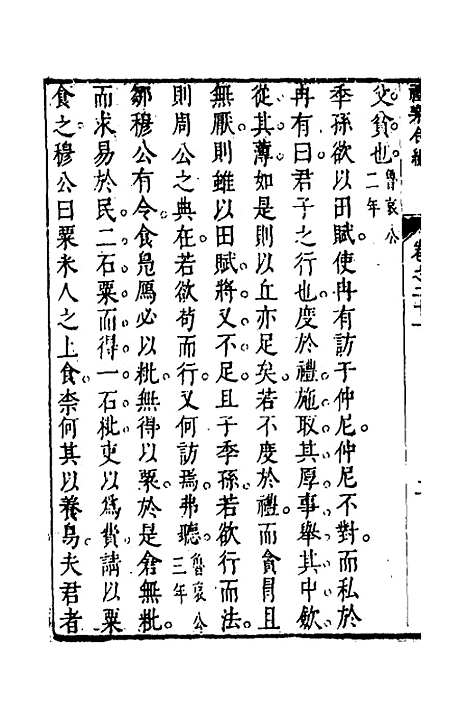 禮樂合編
卷之二十一
父。貧也。魯哀公二年
季孫欲以田賦。使冉有訪于仲尼。仲尼不對。而私於
冉有曰君子之行也。度於禮。施取其厚。事舉其中。歛
從其薄。如是則以丘亦足矣。若不度於禮。而貪冐且
無厭。則雖以田賦。將又不足。且子季孫。若欲行而法。
則周公之典在。若欲苟而行。又何訪焉。弗聽。魯哀公三年
鄒穆公有令。食鳧鴈必以粃。無得以粟。於是倉無粃。
而求易於民。二石粟而得一石粃。吏以爲費。請以粟
食之。穆公曰粟米人之上食。柰何其以養鳥。夫君者